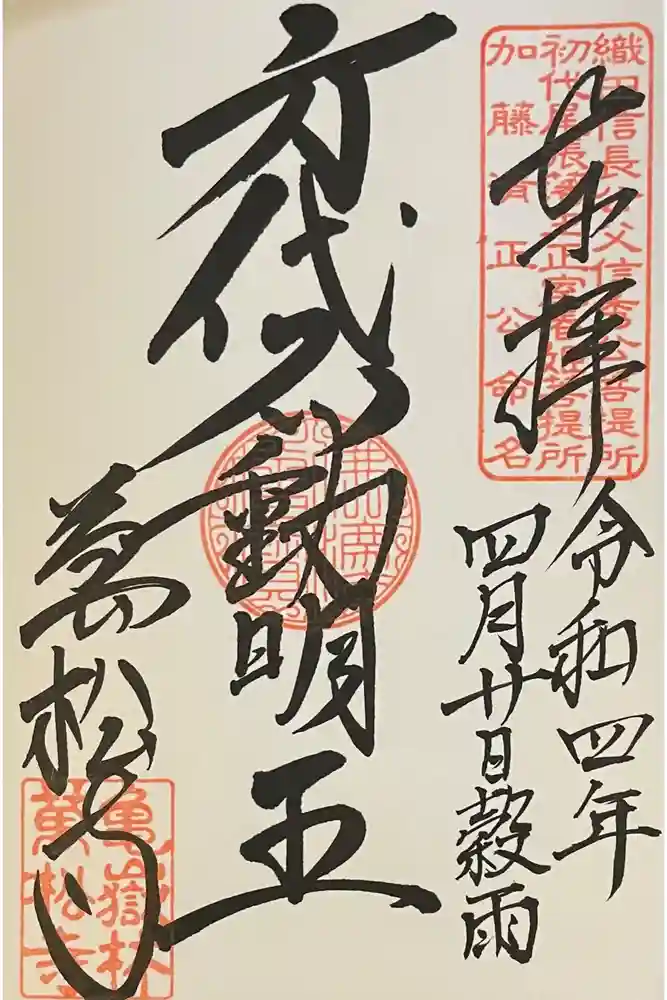 奉拝
織田信長公父信秀公菩提所
初代尾張藩主正室春姫菩提所
加藤清正公命名
令和四年
四月廿日穀雨
身代不動明王
萬松寺
龜嶽林
萬松寺